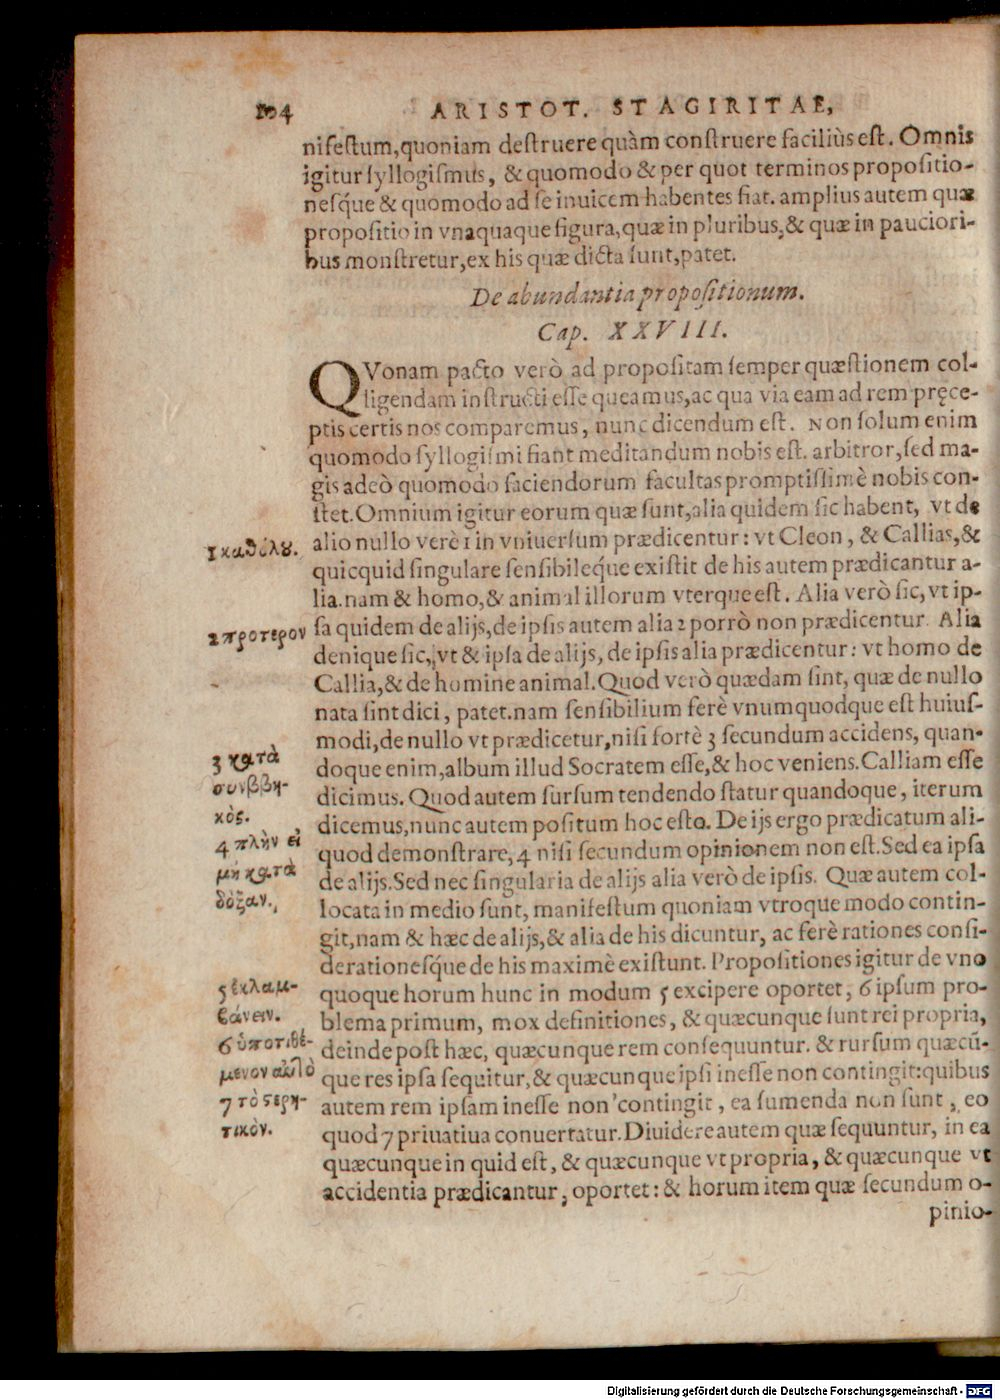 104 ARISTOT. STAGIRITAE,
nifestum,quoniam destruere quàm construere faciliùs est. Omnis
igitur syllogismus, & quomodo & per quot terminos propositio-
nesq́ue & quomodo ad se inuicem habentes fiat. amplius autem quæ
propositio in vnaquaque figura,quæ in pluribus,& quæ in paucioribus
bus monstretur,ex his quæ dicta sunt,patet.
De abundantia propositionum.
Cap. XXVIII.
QVonam pacto verò ad propositam semper quæstionem col-
ligendam instructi esse queamus,ac qua via eam ad rem pręce-
ptis certis nos comparemus, nunc dicendum est. Non solum enim
quomodo syllogismi fiant meditandum nobis est. arbitror,sed ma-
gis adeò quomodo faciendorum facultas promptissimè nobis con-
stet.Omnium igitur eorum quæ sunt,alia quidem sic habent, vt de
1 καθόλου.
alio nullo verè 1 in vniuersum prædicentur: vt Cleon, & Callias,&
quicquid singulare sensibileq́ue existit de his autem prædicantur a-
lia.nam & homo,& animal illorum vterque est. Alia verò sic,vt ip-
2 πρότερον
sa quidem de alijs,de ipsis autem alia 2 porrò non prædicentur. Alia
denique sic,vt & ipsa de alijs, de ipsis alia prædicentur: vt homo de
Callia,& de homine animal.Quod verò quædam sint, quæ de nullo
nata sint dici, patet.nam sensibilium ferè vnumquodque est huius-
modi,de nullo vt prædicetur,nisi fortè 3 secundum accidens, quan-
3 κατὰ
doque enim,album illud Socratem esse,& hoc veniens.Calliam esse
συνββη-
dicimus. Quod autem sursum tendendo statur quandoque, iterum
κὸς.
dicemus,nunc autem positum hoc esto. De ijs ergo prædicatum ali-
4 πλὴν εἰ
quod demonstrare, 4 nisi secundum opinionem non est.Sed ea ipsa
μὴ κατὰ
de alijs.Sed nec singularia de alijs alia verò de ipsis. Quæ autem col-
δόξαν.
locata in medio sunt, manifestum quoniam vtroque modo contin-
git,nam & hæc de alijs,& alia de his dicuntur, ac ferè rationes consi-
derationesq́ue de his maximè existunt. Propositiones igitur de vno
5 ἐκλαμ-
quoque horum hunc in modum 5 excipere oportet, 6 ipsum pro-
βάνειν.
blema primum, mox definitiones, & quæcunque sunt rei propria,
6 ὑποτιθέ-
deinde post hæc, quæcunque rem consequuntur. & rursum quæcũ-
μενον αὐτὸ
que res ipsa sequitur,& quæcunque ipsi inesse non contingit:quibus
7 τὸ στερη-
autem rem ipsam inesse non contingit, ea sumenda non sunt, eo
τικὸν.
quod 7 priuatiua conuertatur.Diuidere autem quæ sequuntur, in ea
quæcunque in quid est, & quæcunque vt propria, & quæcunque vt
accidentia prædicantur, oportet: & horum item quæ secundum o-
pinio-
Digitalisierung gefördert durch die Deutsche Forschungsgemeinschaft - DFG